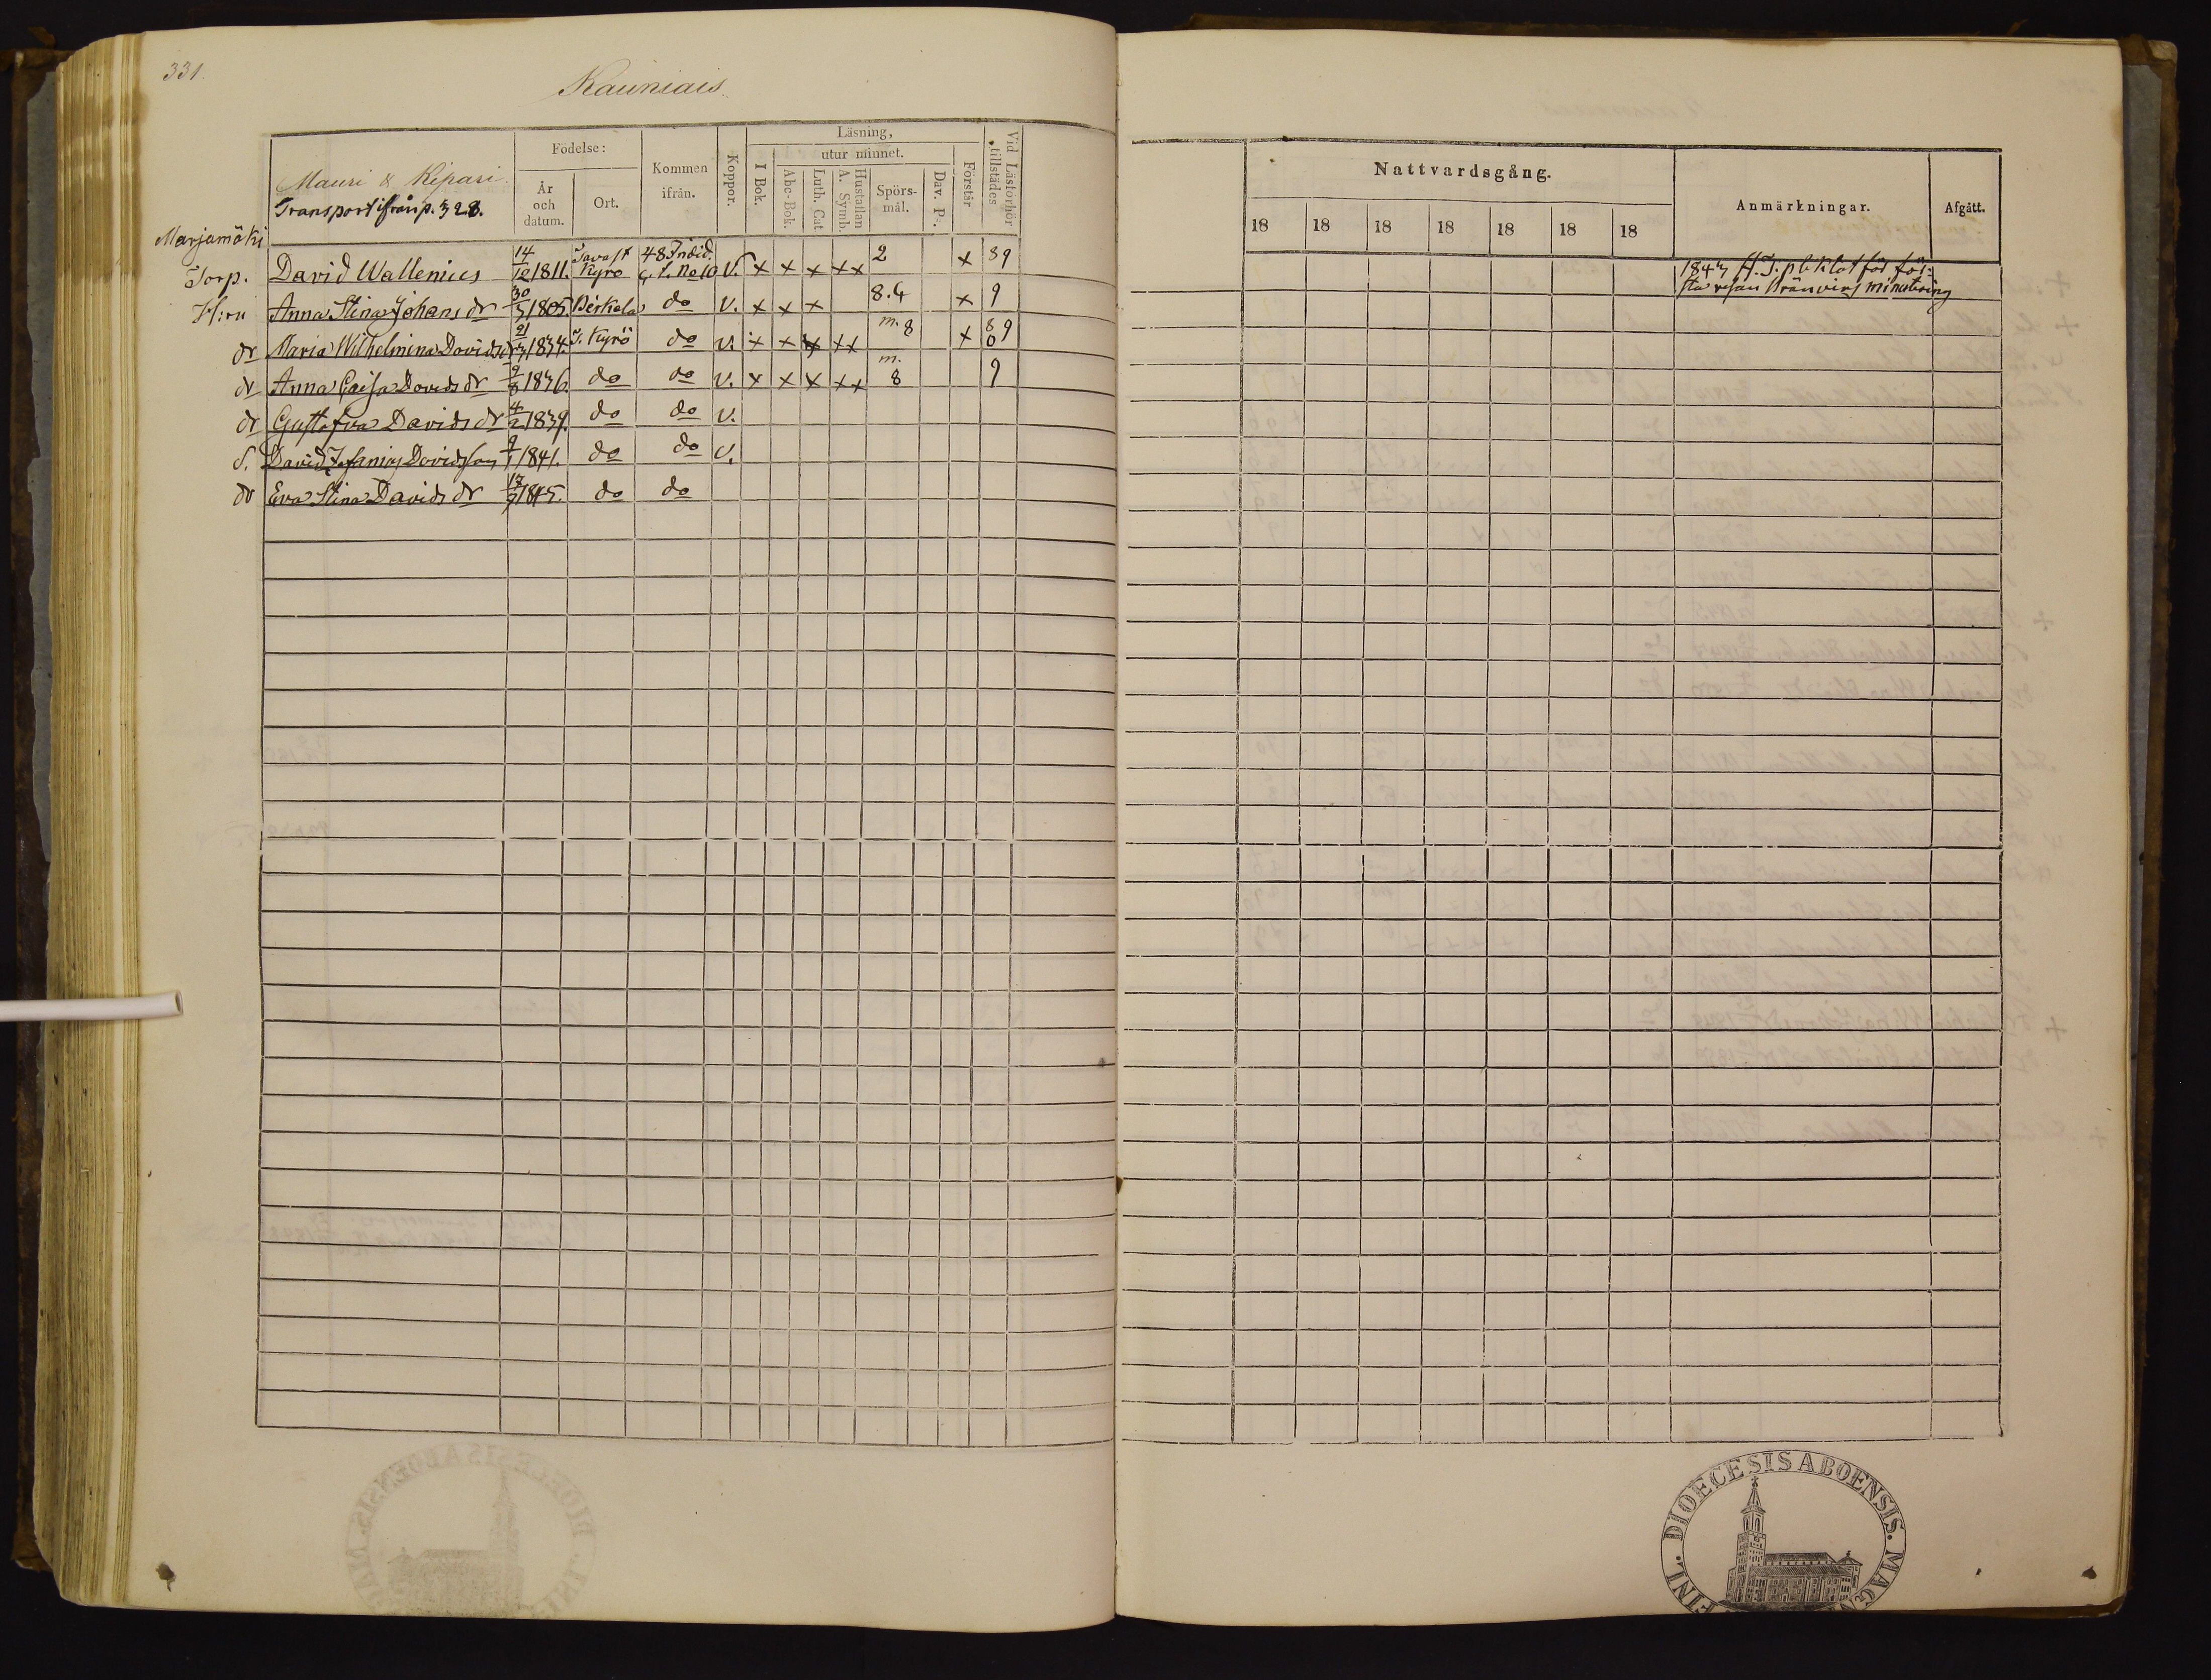 331.
Kauniais
Mauri & Kipari.
Transport ifrån p. 328.
Födelse:
År och datum.
Ort.
Kommen ifrån.
Koppor.
Läsning,
I Bok.
utur minnet.
Abc-Bok.
Luth. Cat
Hustaflan A. Symb.
Spörs-mål.
Dav. Ps.
Förstår
Vid Läsförhör tillstädes
Nattvardsgång.
18 18 18 18 18 18 18
Anmärkningar.
Afgått.
Marjamäki
Torp. David Wallenius 14/12 1811. Tavast Kyro 48 V. x x x xx 2 x 89
H:ru Anna Stina Johans dr 30/5 1805. Birkala do V. x x x 8.4 x 9
dr Maria Wilhelmina Davids dr 21/3 1834. T. Kyrö do V. x x x xx m. 8 x 89 0
dr Anna Caisa Davids dr 9/8 1836. do do V. x x x xx m. 8 9
dr Gustafva Davids dr 4/2 1839. do do V.
S. David Davidsson 9/1 1841. do do V.
dr Eva Stina Davids dr 1845. do do
1847 H.T. för för:
sta resan
DIOECESIS ABOENSIS. MAGN
FINL.